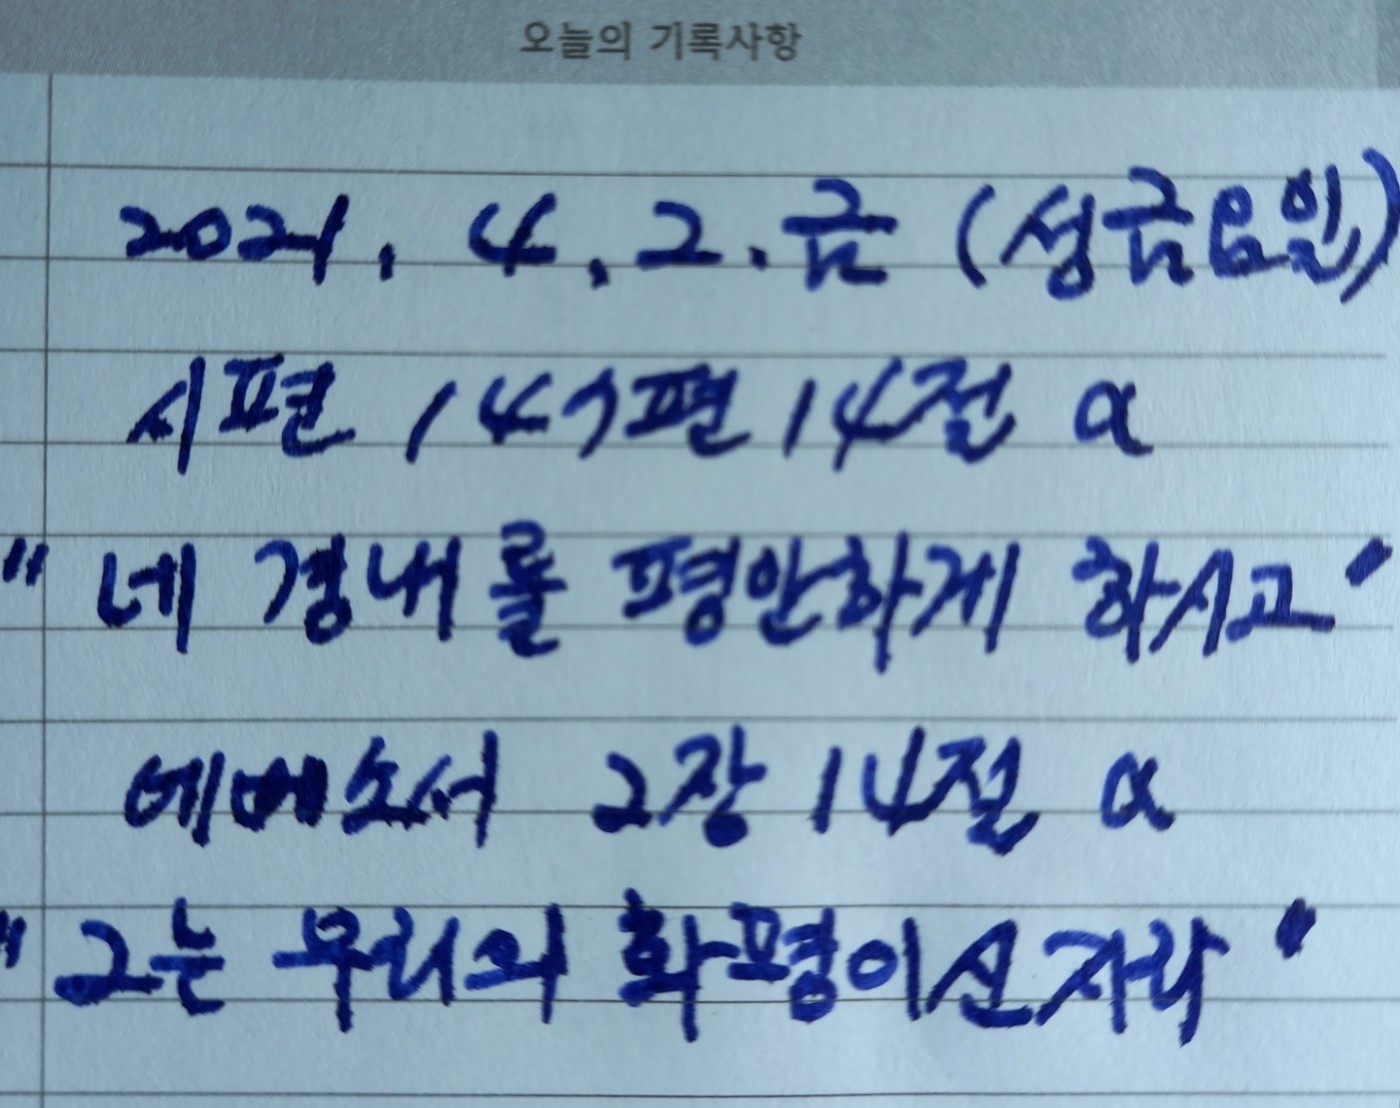 오늘의 기록사항
2021. 4. 2. 금 (성금요일)
시편 147편 14절 α
"네 경내를 평안하게 하시고"
에베소서 2장 14절 α
"그는 우리의 화평이신지라"